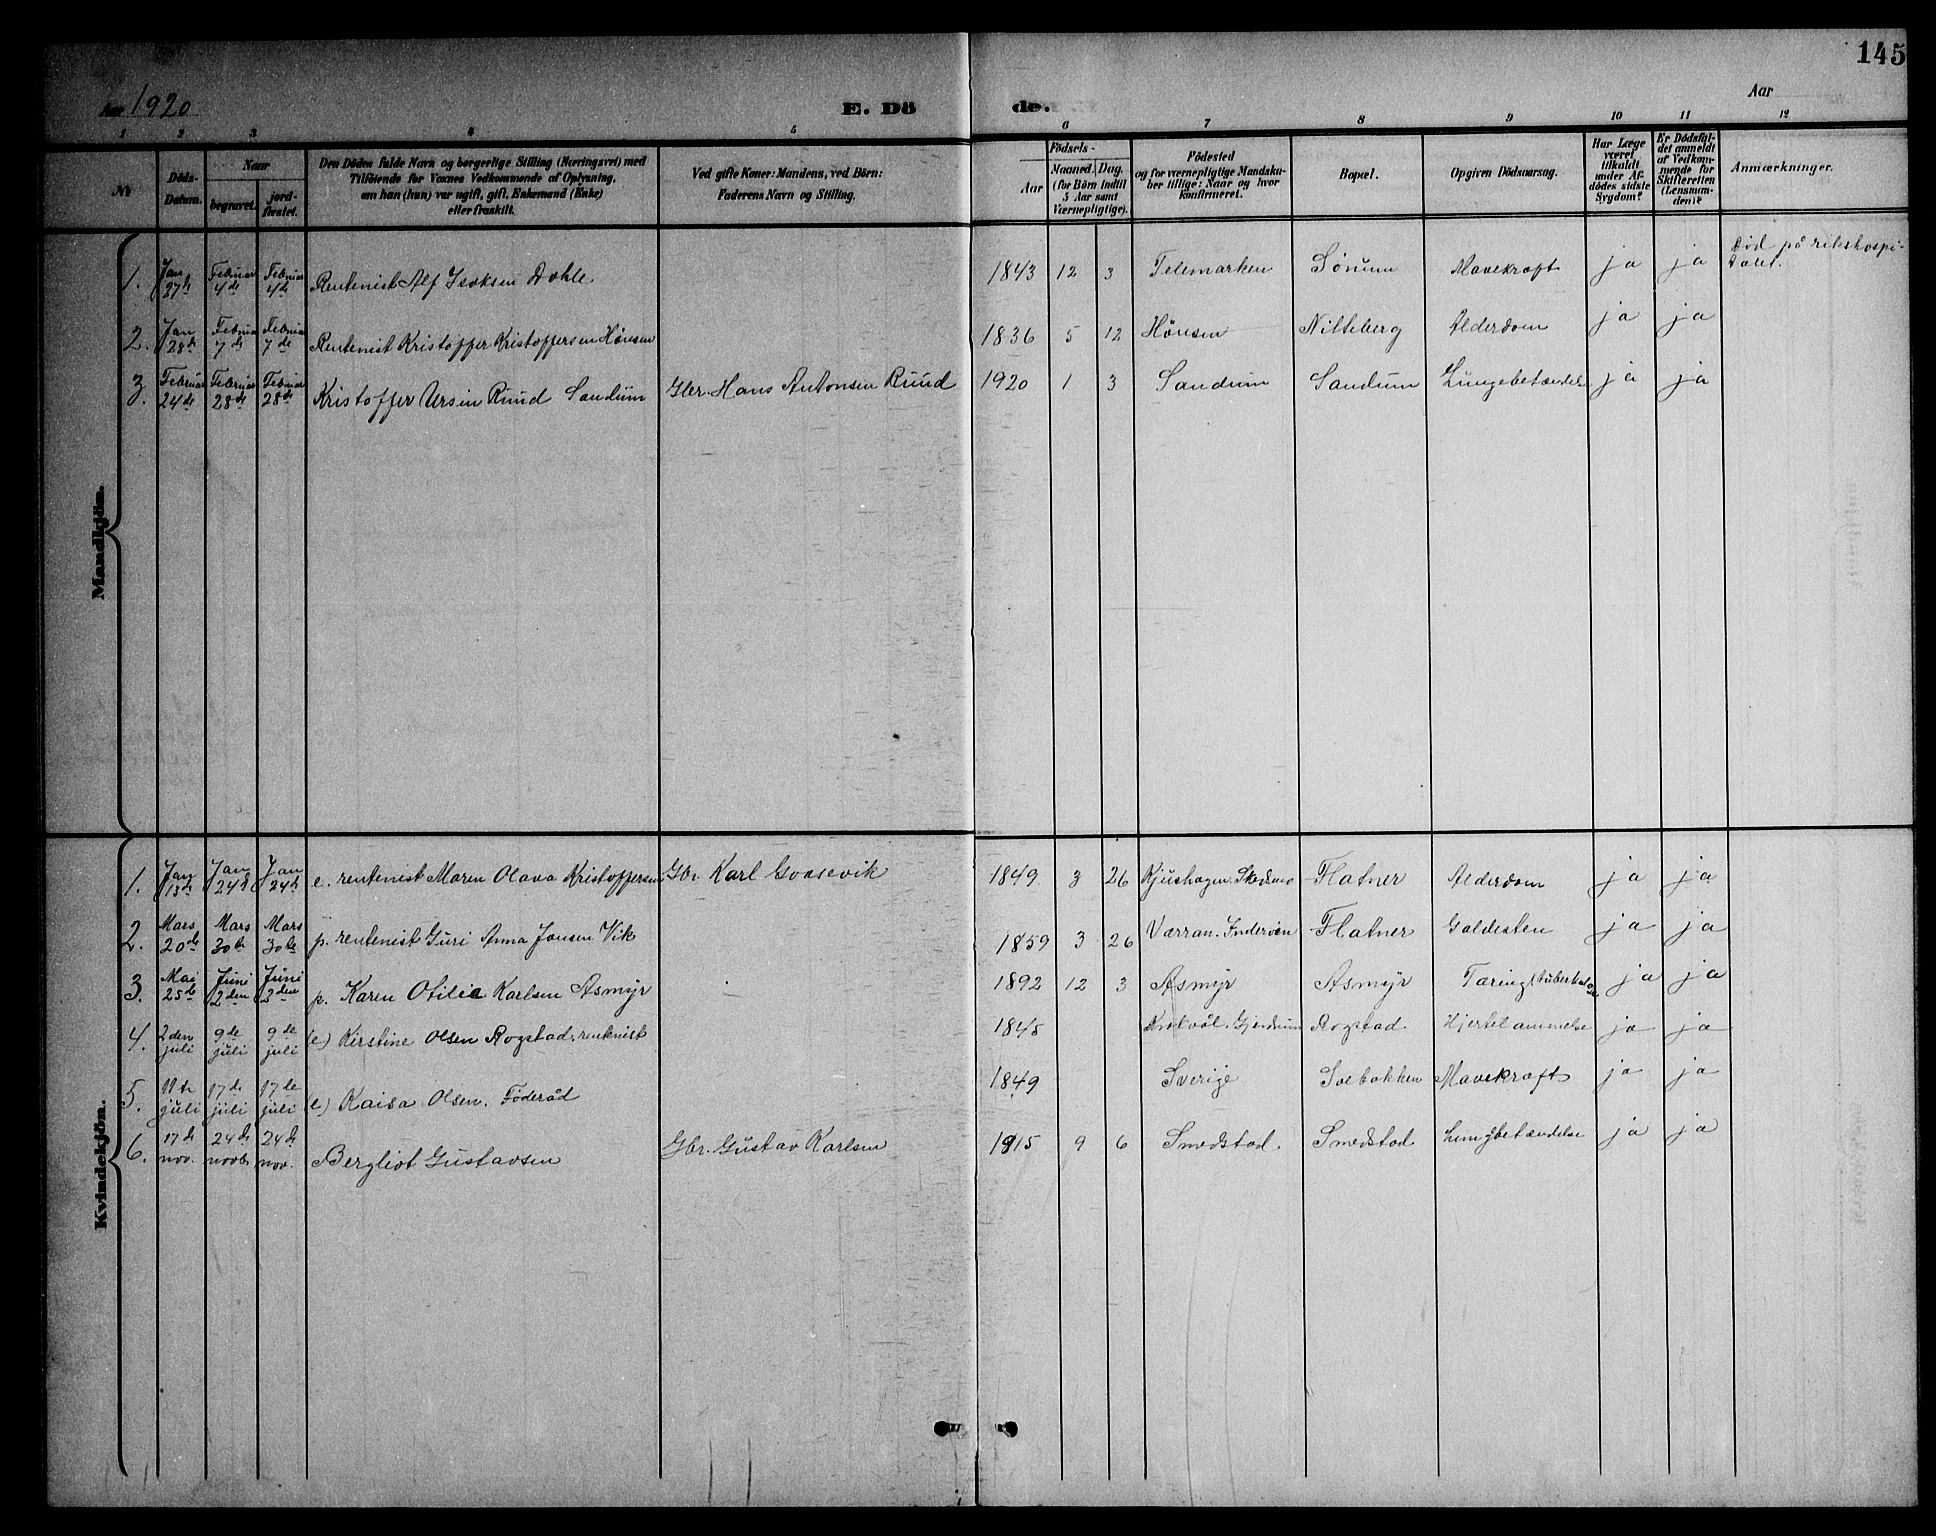 145
Aar 1920 E. Dö de. Aar
1 2 3 4 5 6 7 8 9 10 11 12
No Döds-Datum. Naar begravet. jord-fæstet. Den Dödes fulde Navn og borgerlige Stilling (Næringsvei) med Tilföiende for Voxnes Vedkommende af Oplysning, om han (hun) var ugift, gift, Enkemand (Enke) eller fraskilt. Ved gifte Koner: Mandens, ved Börn: Faderens Navn og Stilling. Födsels- Aar Maaned. Dag. (for Börn indtil 5 Aar samt Værnepligtige). Födested og for værnepligtige Mandskaber tillige: Naar og hvor konfirmeret. Bopæl. Opgiven Dödsaarsag. Har Læge været tilkaldt under Afdödes sidste Sygdom? Er Dödsfaldet anmeldt af Vedkommende for Skifteretten (Lensmanden)? Anmærkninger.
Mandkjön.
1. Jan 27de Februar 4de Februar 4de Rentenist Alf Isaksen Dahle 1843 12 3 Telemarken Sörum Mavekræft ja ja Död på rikshospitalet.
2. Jan 28de Februar 7de Februar 7de Rentenist Kristoffer Kristoffersen Hønsen 1836 5 12 Hønsen Nitteberg Alderdom ja ja
3. Februar 24de Februar 28de Februar 28de Kristoffer Ursin Ruud Sandum Gbr. Hans Antonsen Ruud 1920 1 3 Sandum Sandum Lungebetændelse ja ja
Kvindekjön.
1. Jan 13de Jan 24de Jan 24de e. rentenist Maren Olava Kristoffersen Gbr. Karl Goasevik 1849 3 26 Kjushagen. Skedsmo Flatner Alderdom ja ja
2. Mars 20de Mars 30te Mars 30te p. rentenist Guri Anna Jonsen Vik 1859 3 26 Værran. Inderöen Flatner Galdesten ja ja
3. Mai 25de Juni 2den Juni 2den p. Karen Otilie Karlsen Asmyr 1892 12 3 Asmyr Asmyr Tæring (tuberkulose ja ja
4. 2den juli 9de juli 9de juli (e) Kirstine Olsen Rogstad. rentenist 1845 Gjerdrum Rogstad Hjertelammelse ja ja
5. 11te juli 17de juli 17de juli (e) Kaisa Olsen. Föderåd 1849 Sverige Solbakken Mavekræft ja ja
6. 17de nov. 24de novb 24de nov. Bergliot Gustavsen Gbr. Gustav Karlsen 1915 9 6 Smedstad. Smedstad Lungbetændelse ja ja